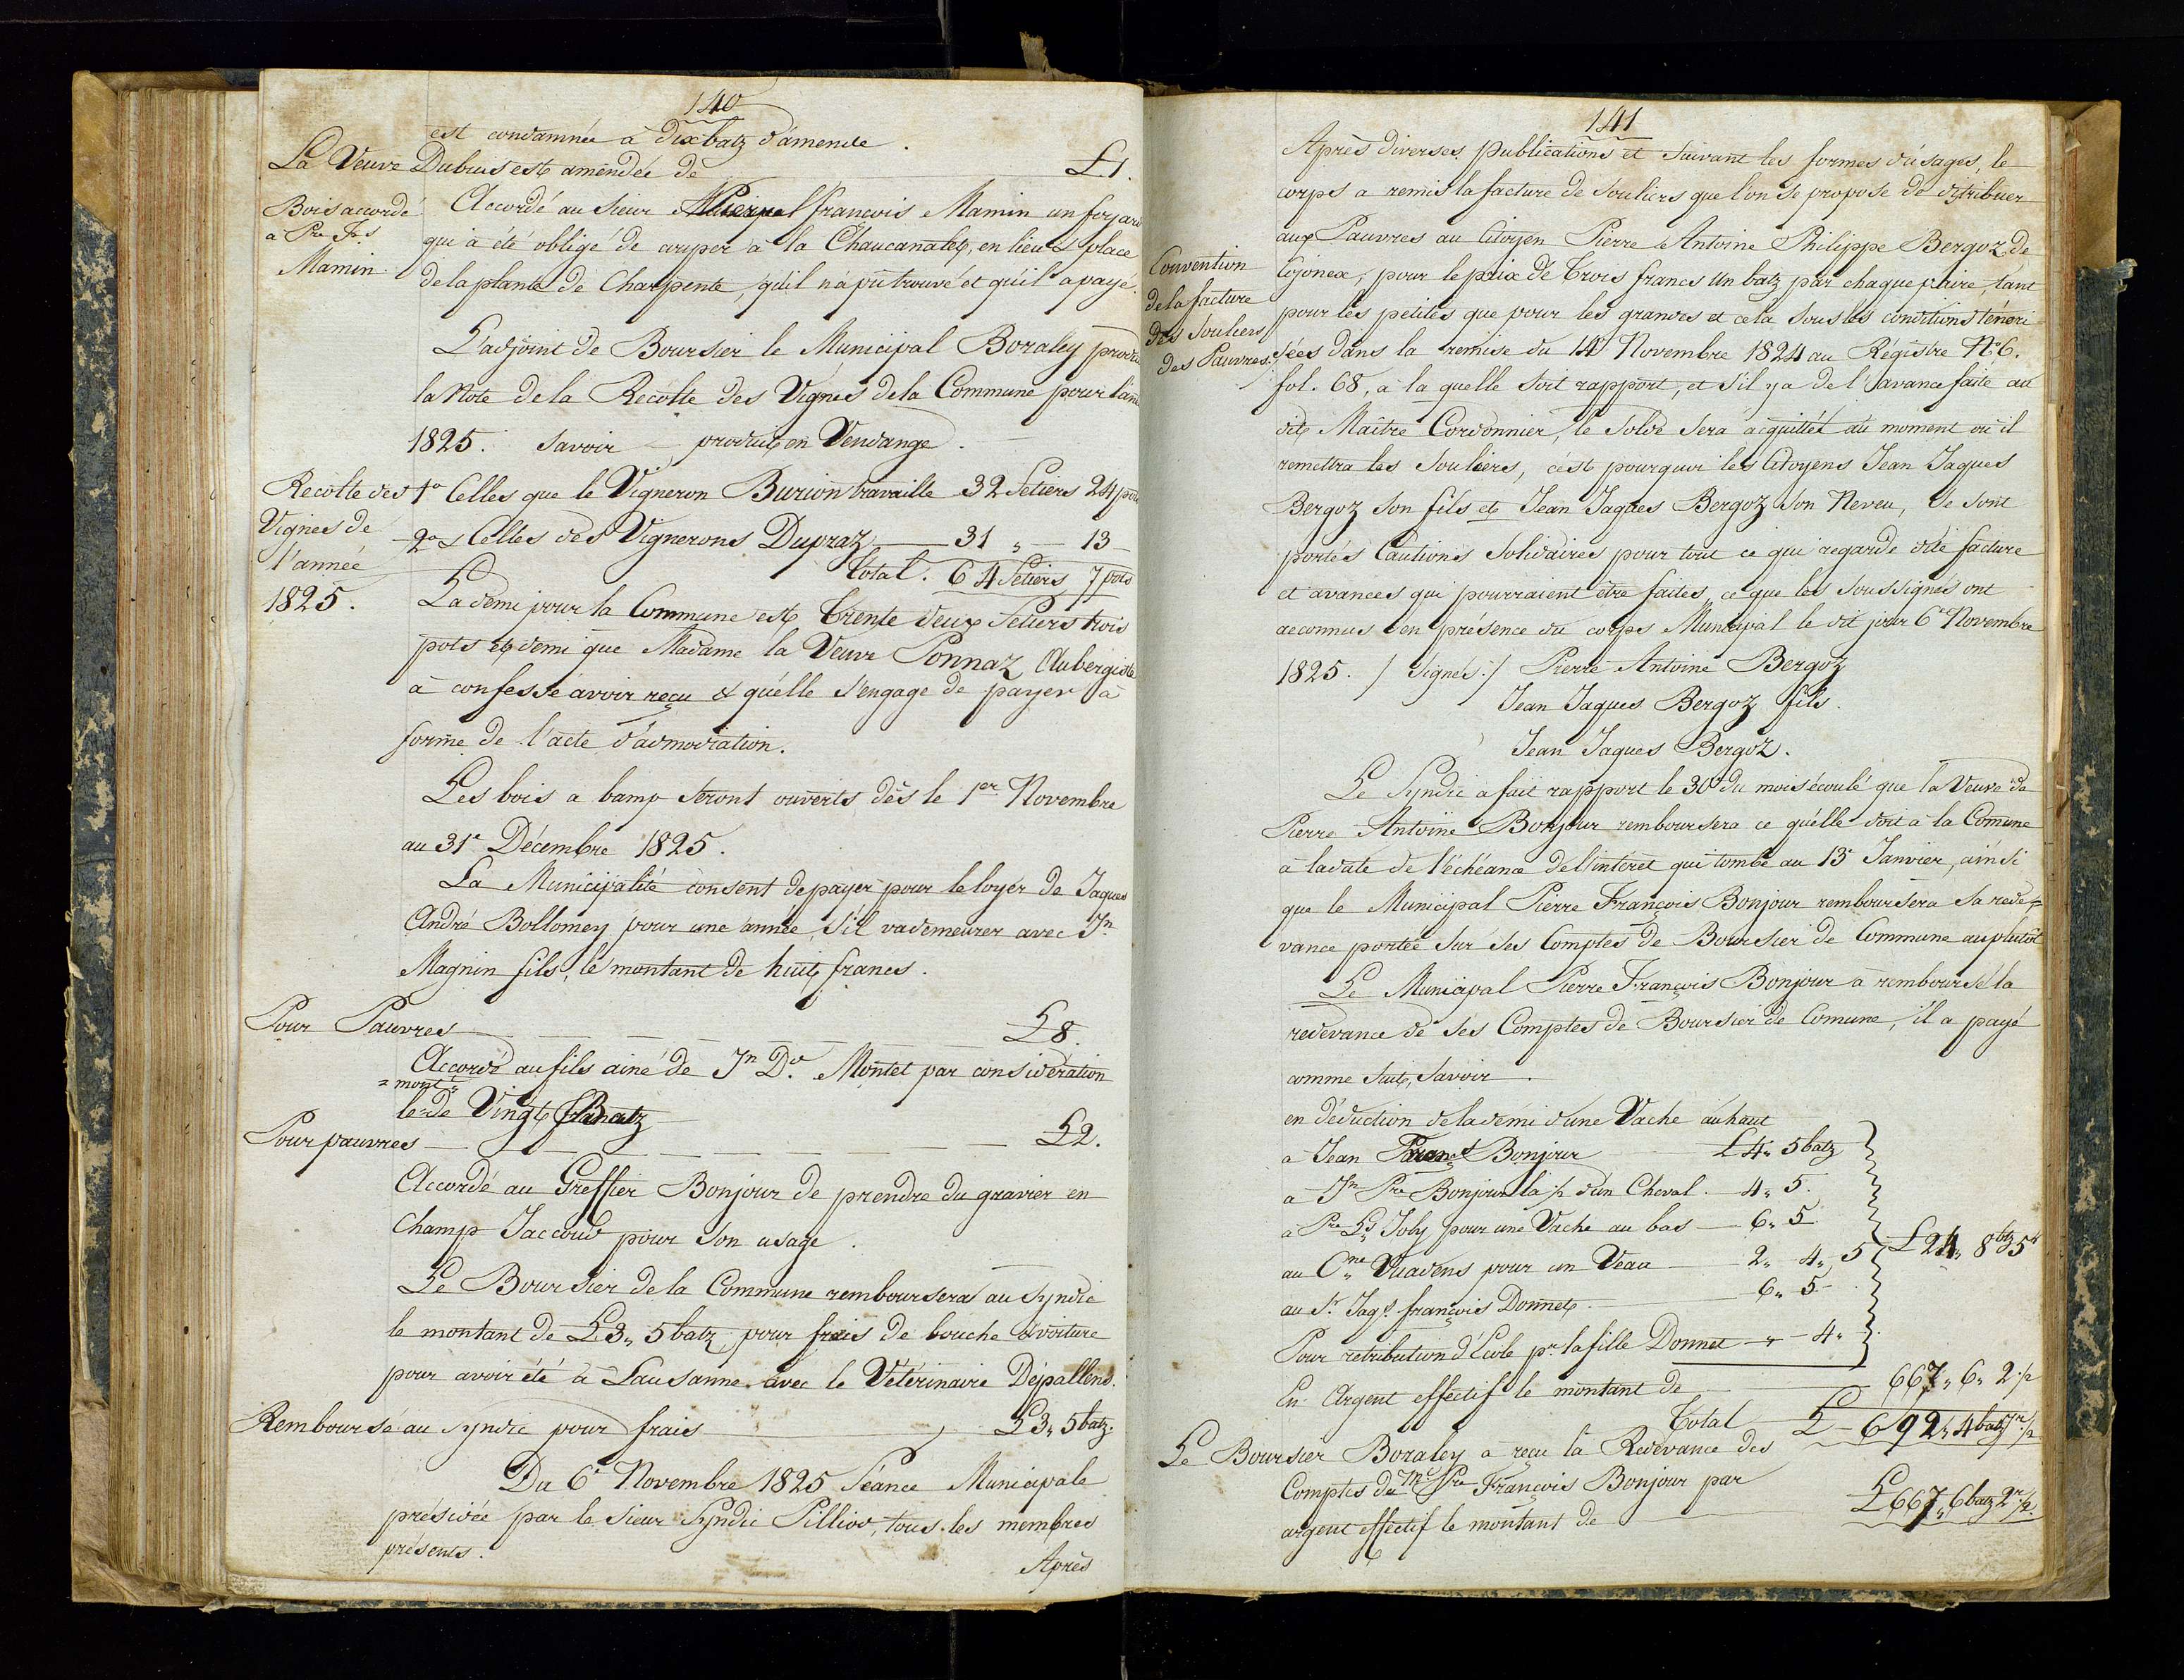 140
est condamnée à dix batz d'amende.
La Veuve Dubuis est amendée de L 1.
Bois accordé
à Pre Fs
Mamin
Accordé au Sieur Pierre françois Mamin un foyard
qui à été obligé de couper à la Chaucanalet, en lieu & place
de la plante de Charpente, qu'il n'a pu trouvé et qu'il a payé.
L'adjoint de Boursier le Municipal Boraley produit
la Note de la Recolte des Vignes de la Commune pour l'année
1825. Savoir produit en Vendange.
Recolte des
Vignes de
l'année
1825.
1o Celles que le Vigneron Burion travaille 32 Setiers 24 pots
2o & Celles des Vignerons Dupraz 31 „ 13
Total. 64 Setiers 7 pots
La demi pour la Commune est Trente deux Setiers trois
pots et demi que Madame la Veuve Ponnaz Aubergiste
à confessé avoir reçu & qu'elle s'engage de payer à
forme de l'acte d'admodiation.
Les bois a bamp seront ouverts dès le 1er Novembre
au 31e Décembre 1825.
La Municipalité consent de payer pour le loyer de Jaques
André Bollomey pour une année, s'il va demeurer avec Jn
Magnin fils, le montant de huit francs.
Pour Pauvres L 8.
Accordé au fils ainé de Jn Dd. Montet par considération
= mont =
le de Vingt Batz
Pour pauvres L 2.
Accordé au Greffier Bonjour de prendre du gravier en
Champ Jaccoud pour son usage.
Le Boursier de la Commune remboursera au Syndic
le montant de L 3„ 5 batz pour frais de bouche & voiture
pour avoir été à Lausanne avec le Vétérinaire Dépallens.
Remboursé au Syndic pour frais L 3„ 5 batz.
Du 6e Novembre 1825 Séance Municipale
présidée par le Sieur Syndic Pilliod, tous les membres
présents.
Après
141
Après diverses publications et suivant les formes d'usages, le
corps a remis la facture de souliers que l'on se propose de distribuer
aux Pauvres au Citoyen Pierre Antoine Philippe Bergoz de
Convention
de la facture
des Souliers
des Pauvres.
Cojonex, pour le prix de Trois francs un batz par chaque paire, tant
pour les petites que pour les grandes et cela sous les conditions ténori-
sées dans la remise du 14 Novembre 1824 au Régistre No 6.
fol. 68, a la quelle soit rapport, et s'il y a de l'avance faite au
dit Maître Cordonnier, le solde sera acquittét au moment où il
remettra les Souliers, c'est pourquoi les Citoyens Jean Jaques
Bergoz son fils et Jean Jaques Bergoz son Neveu, se sont
portés Cautions Solidaires pour tout ce qui regarde dite facture
et avances qui pourraient être faites, ce que les soussignés ont
reconnus en présence du corps Municipal le dit jour 6e Novembre
1825. / Signés: / Pierre Antoine Bergoz
Jean Jaques Bergoz fils.
Jean Jaques Bergoz.
Le Syndic a fait rapport le 30e du mois écoulé que la Veuve de
Pierre Antoine Bonjour remboursera ce qu'elle doit à la Comune
à la date de l'échéance de l'intéret qui tombe au 13e Janvier, ainsi
que le Municipal Pierre François Bonjour remboursera sa rede-
vance portée sur ses Comptes de Boursier de Commune au plutôt
Le Municipal Pierre François Bonjour a remboursé la
redevance de ses Comptes de Boursier de Comune, il a payé
comme suit, Savoir.
en déduction de la demi d'une Vache au haut
a Jean Bonjour L 4„ 5 batz
a Jn Pre Bonjour la 1/2 d'un Cheval. 4„ 5.
à Pre Ls Joly pour une Vache au bas 6„ 5
au Cne Vuadens pour un Veau 2„ 4„ 5
L 24„ 8 btz 5 r
au Sr Jaqs françois Donnet 6„ 5
Pour retribution d'Ecole pr la fille Donnet „ 4„
En Argent effectif le montant de 667„ 6„ 2 1/2
Total L 692„ 4 batz 7 r 1/2
Le Boursier Boraley a reçu la Redevance des
Comptes du Mal Pre François Bonjour par
argent effectif le montant de L 667„ 6 batz 2 r 1/2.